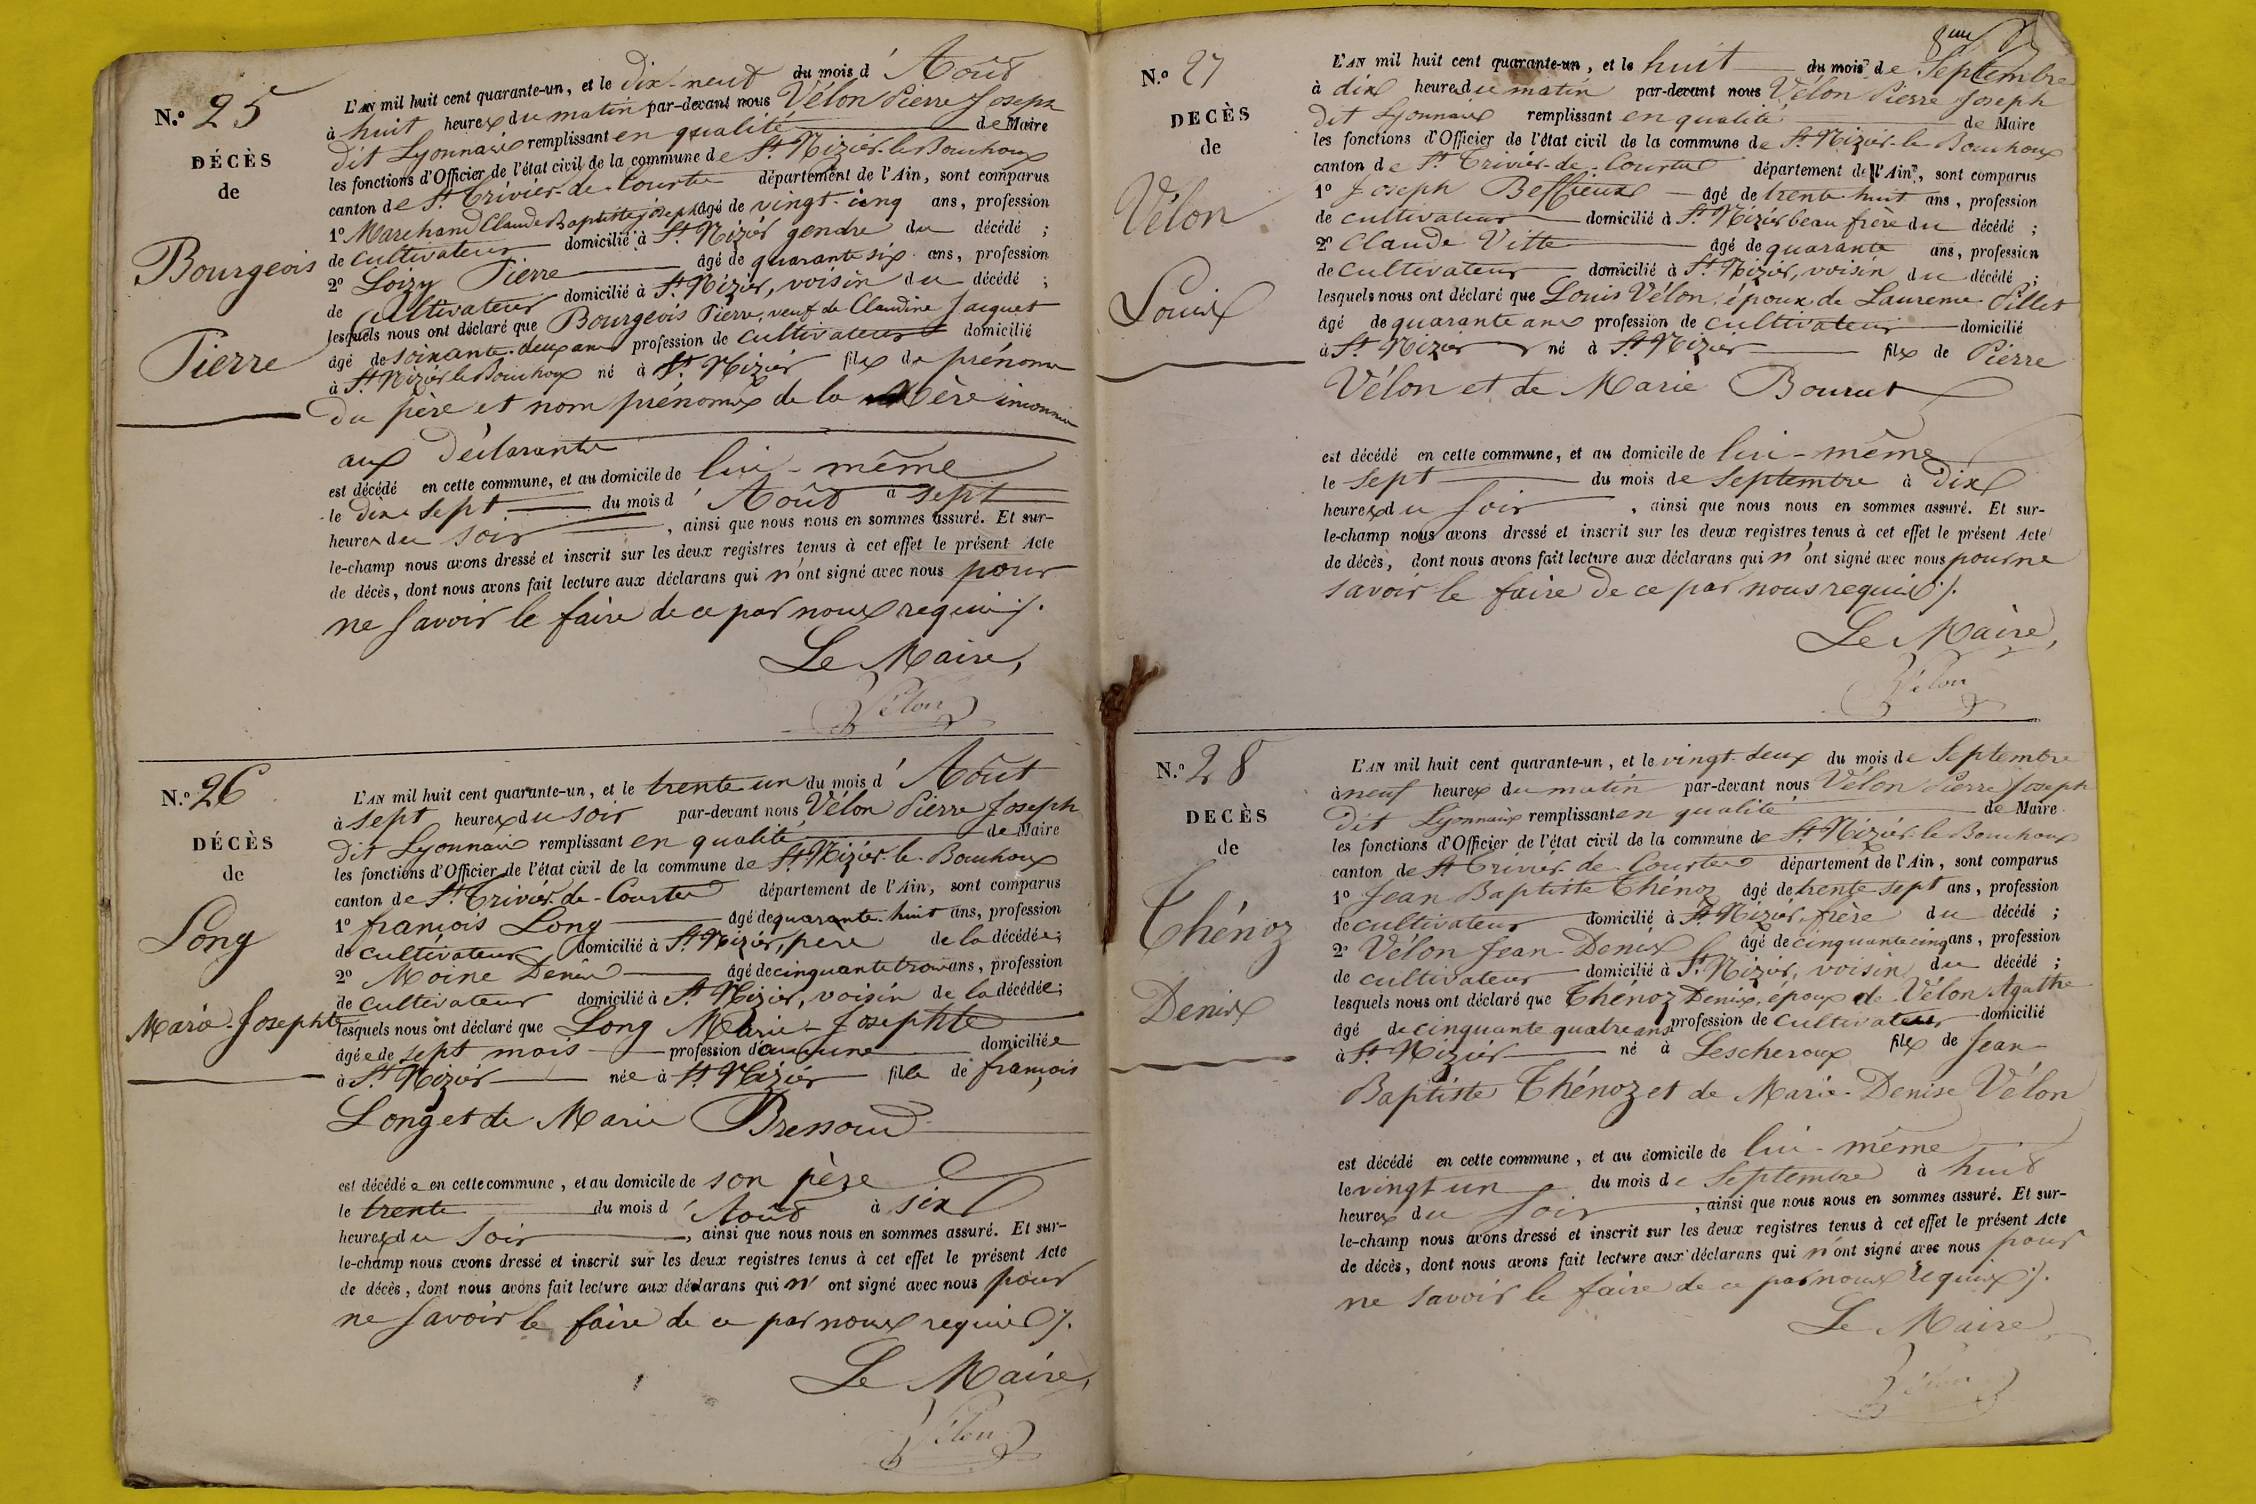 N.º 25
DÉCÈS
de
Bourgeois
Pierre
L'AN mil huit cent quarante-un, et le dix-neuf du mois d'Août
à huit heures du matin par-devant nous Vélon Pierre Joseph
dit Lyonnais remplissant en qualité de Maire
les fonctions d'Officier de l'état civil de la commune de St Nizier-le-Bouchoux
canton de St Trivier-de-Courtes département de l'Ain, sont comparus
1º Marchand Claude Baptiste joseph âgé de vingt-cinq ans, profession
de cultivateur domicilié à St Nizier gendre du décédé ;
2º Loizy Pierre âgé de quarante six ans, profession
de cultivateur domicilié à St Nizier, voisin du décédé ;
lesquels nous ont déclaré que Bourgeois Pierre, veuf de Claudine Jacquet
âgé de soixante-deux ans profession de cultivateur domicilié
à St Nizier le Bouchoux né à St Nizier fils de prénoms
du père et nom prénoms de la Mère inconnus
aux Déclarants
est décédé en cette commune, et au domicile de lui-même
le dix-sept du mois d'Août à sept
heures du soir, ainsi que nous nous en sommes assuré. Et sur-
le-champ nous avons dressé et inscrit sur les deux registres tenus à cet effet le présent Acte
de décès, dont nous avons fait lecture aux déclarans qui n'ont signé avec nous pour
ne savoir le faire de ce par nous requis.
Le Maire,
Vélon
N.º 26
DÉCÈS
de
Long
Marie-Josephte
L'AN mil huit cent quarante-un, et le trente un du mois d'Août
à sept heures du soir par-devant nous Vélon Pierre Joseph
dit Lyonnais remplissant en qualité de Maire
les fonctions d'Officier de l'état civil de la commune de St Nizier-le-Bouchoux
canton de St Trivier-de-Courtes département de l'Ain, sont comparus
1º françois Long âgé de quarante-huit ans, profession
de cultivateur domicilié à St Nizier, père de la décédée ;
2º Moine Denis âgé de cinquante trois ans, profession
de cultivateur domicilié à St Nizier, voisin de la décédée ;
lesquels nous ont déclaré que Long Marie-Josephte
âgée de sept mois profession d'aucune domiciliée
à St Nizier née à St Nizier fille de françois
Long et de Marie Bressoud
est décédée en cette commune, et au domicile de son père
le trente du mois d'Août à six
heures du soir, ainsi que nous nous en sommes assuré. Et sur-
le-champ nous avons dressé et inscrit sur les deux registres tenus à cet effet le présent Acte
de décès, dont nous avons fait lecture aux déclarans qui n'ont signé avec nous pour
ne savoir le faire de ce par nous requis.
Le Maire,
Vélon
N.º 27
DECÈS
de
Vélon
Louis
L'AN mil huit cent quarante-un, et le huit du mois de Septembre
à dix heures du matin par-devant nous Vélon Pierre Joseph
dit Lyonnais remplissant en qualité de Maire
les fonctions d'Officier de l'état civil de la commune de St Nizier-le-Bouchoux
canton de St Trivier-de-Courtes département de l'Ain, sont comparus
1º Joseph âgé de trente-huit ans, profession
de cultivateur domicilié à St Nizier beau frère du décédé ;
2º Claude Vitte âgé de quarante ans, profession
de cultivateur domicilié à St Nizier, voisin du décédé ;
lesquels nous ont déclaré que Louis Vélon, époux de Laurence Pillet
âgé de quarante ans profession de cultivateur domicilié
à St Nizier né à St Nizier fils de Pierre
Vélon et de Marie
est décédé en cette commune, et au domicile de lui-même
le sept du mois de Septembre à Dix
heures du soir, ainsi que nous nous en sommes assuré. Et sur-
le-champ nous avons dressé et inscrit sur les deux registres tenus à cet effet le présent Acte
de décès, dont nous avons fait lecture aux déclarans qui n'ont signé avec nous pour ne
savoir le faire de ce par nous requis.
Le Maire,
Vélon
N.º 28
DECÈS
de
Thénoz
Denis
L'AN mil huit cent quarante-un, et le vingt-deux du mois de Septembre
à neuf heures du matin par-devant nous Vélon Pierre Joseph
dit Lyonnais remplissant en qualité de Maire
les fonctions d'Officier de l'état civil de la commune de St Nizier-le-Bouchoux
canton de St Trivier-de-Courtes département de l'Ain, sont comparus
1º Jean Baptiste Thénoz âgé de trente-sept ans, profession
de cultivateur domicilié à St Nizier, frère du décédé ;
2º Vélon Jean-Denis âgé de cinquante cinq ans, profession
de cultivateur domicilié à St Nizier, voisin du décédé ;
lesquels nous ont déclaré que Thénoz Denis, époux de Vélon Agathe
âgé de cinquante quatre ans profession de cultivateur domicilié
à St Nizier né à Lescheroux fils de Jean
Baptiste Thénoz et de Marie-Denise Vélon
est décédé en cette commune, et au domicile de lui-même
le vingt un du mois de Septembre à huit
heures du soir, ainsi que nous nous en sommes assuré. Et sur-
le-champ nous avons dressé et inscrit sur les deux registres tenus à cet effet le présent Acte
de décès, dont nous avons fait lecture aux déclarans qui n'ont signé avec nous pour
ne savoir le faire de ce par nous requis.
Le Maire
Vélon